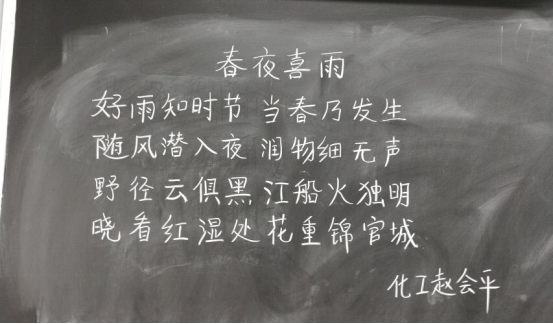 春夜喜雨
好雨知时节 当春乃发生
随风潜入夜 润物细无声
野径云俱黑 江船火独明
晓看红湿处 花重锦官城
化工赵会平